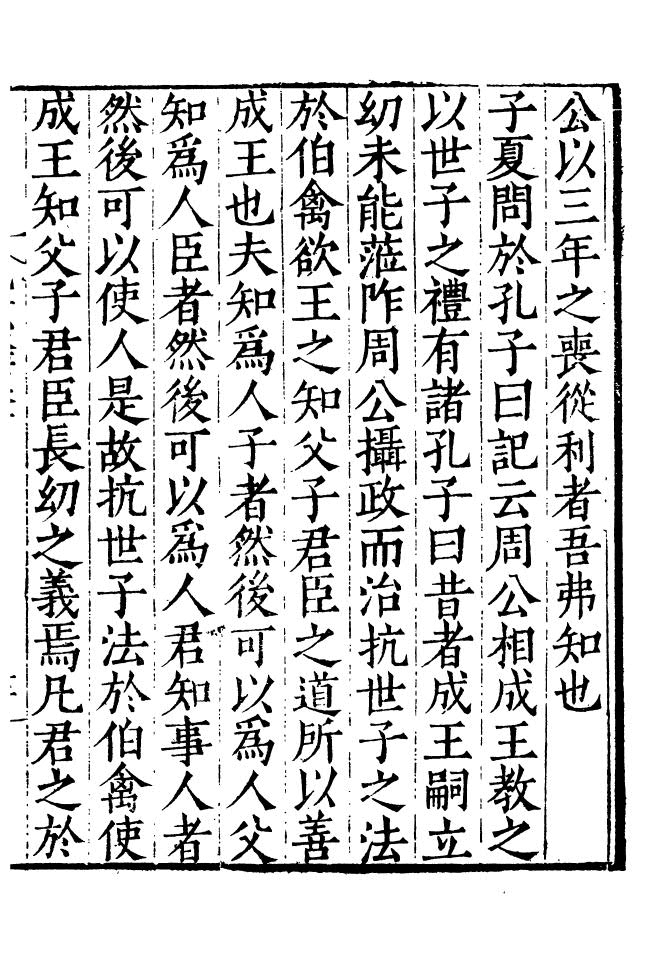 公以三年之喪從利者吾弗知也
子夏問於孔子曰記云周公相成王教之
以世子之禮有諸孔子曰昔者成王嗣立
幼未能蒞阼周公攝政而治抗世子之法
於伯禽欲王之知父子君臣之道所以善
成王也夫知爲人子者然後可以爲人父
知爲人臣者然後可以爲人君知事人者
然後可以使人是故抗世子法於伯禽使
成王知父子君臣長幼之義焉凡君之於